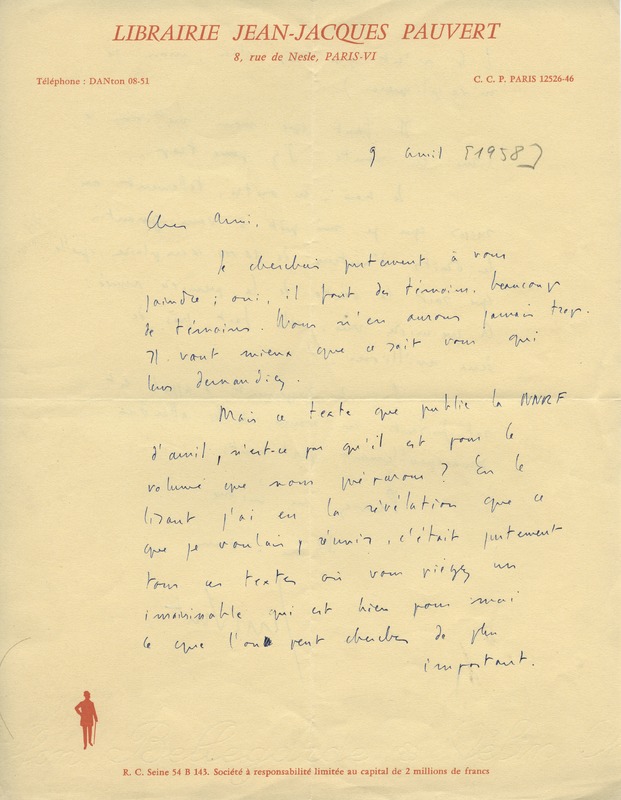 LIBRAIRIE JEAN-JACQUES PAUVERT
8, rue de Nesle, PARIS-VI
Téléphone : DANton 08-51
C. C. P. PARIS 12526-46
9 avril [1958]
Cher Ami,
Je cherchais justement à vous
joindre ; oui, il faut des témoins, beaucoup
de témoins. Nous n'en aurons jamais trop.
Il vaut mieux que ce soit vous qui
leur demandiez.
Mais ce texte que publie la NNRF
d'avril, n'est-ce pas qu'il est pour le
volume que nous préparons ? En le
lisant j'ai eu la révélation que ce
que je voulais réunir, c'était justement
tous ces textes où vous piégez un
insaisissable qui est bien pour moi
ce que l'on peut chercher de plus
important.
R. C. Seine 54 B 143. Société à responsabilité limitée au capital de 2 millions de francs